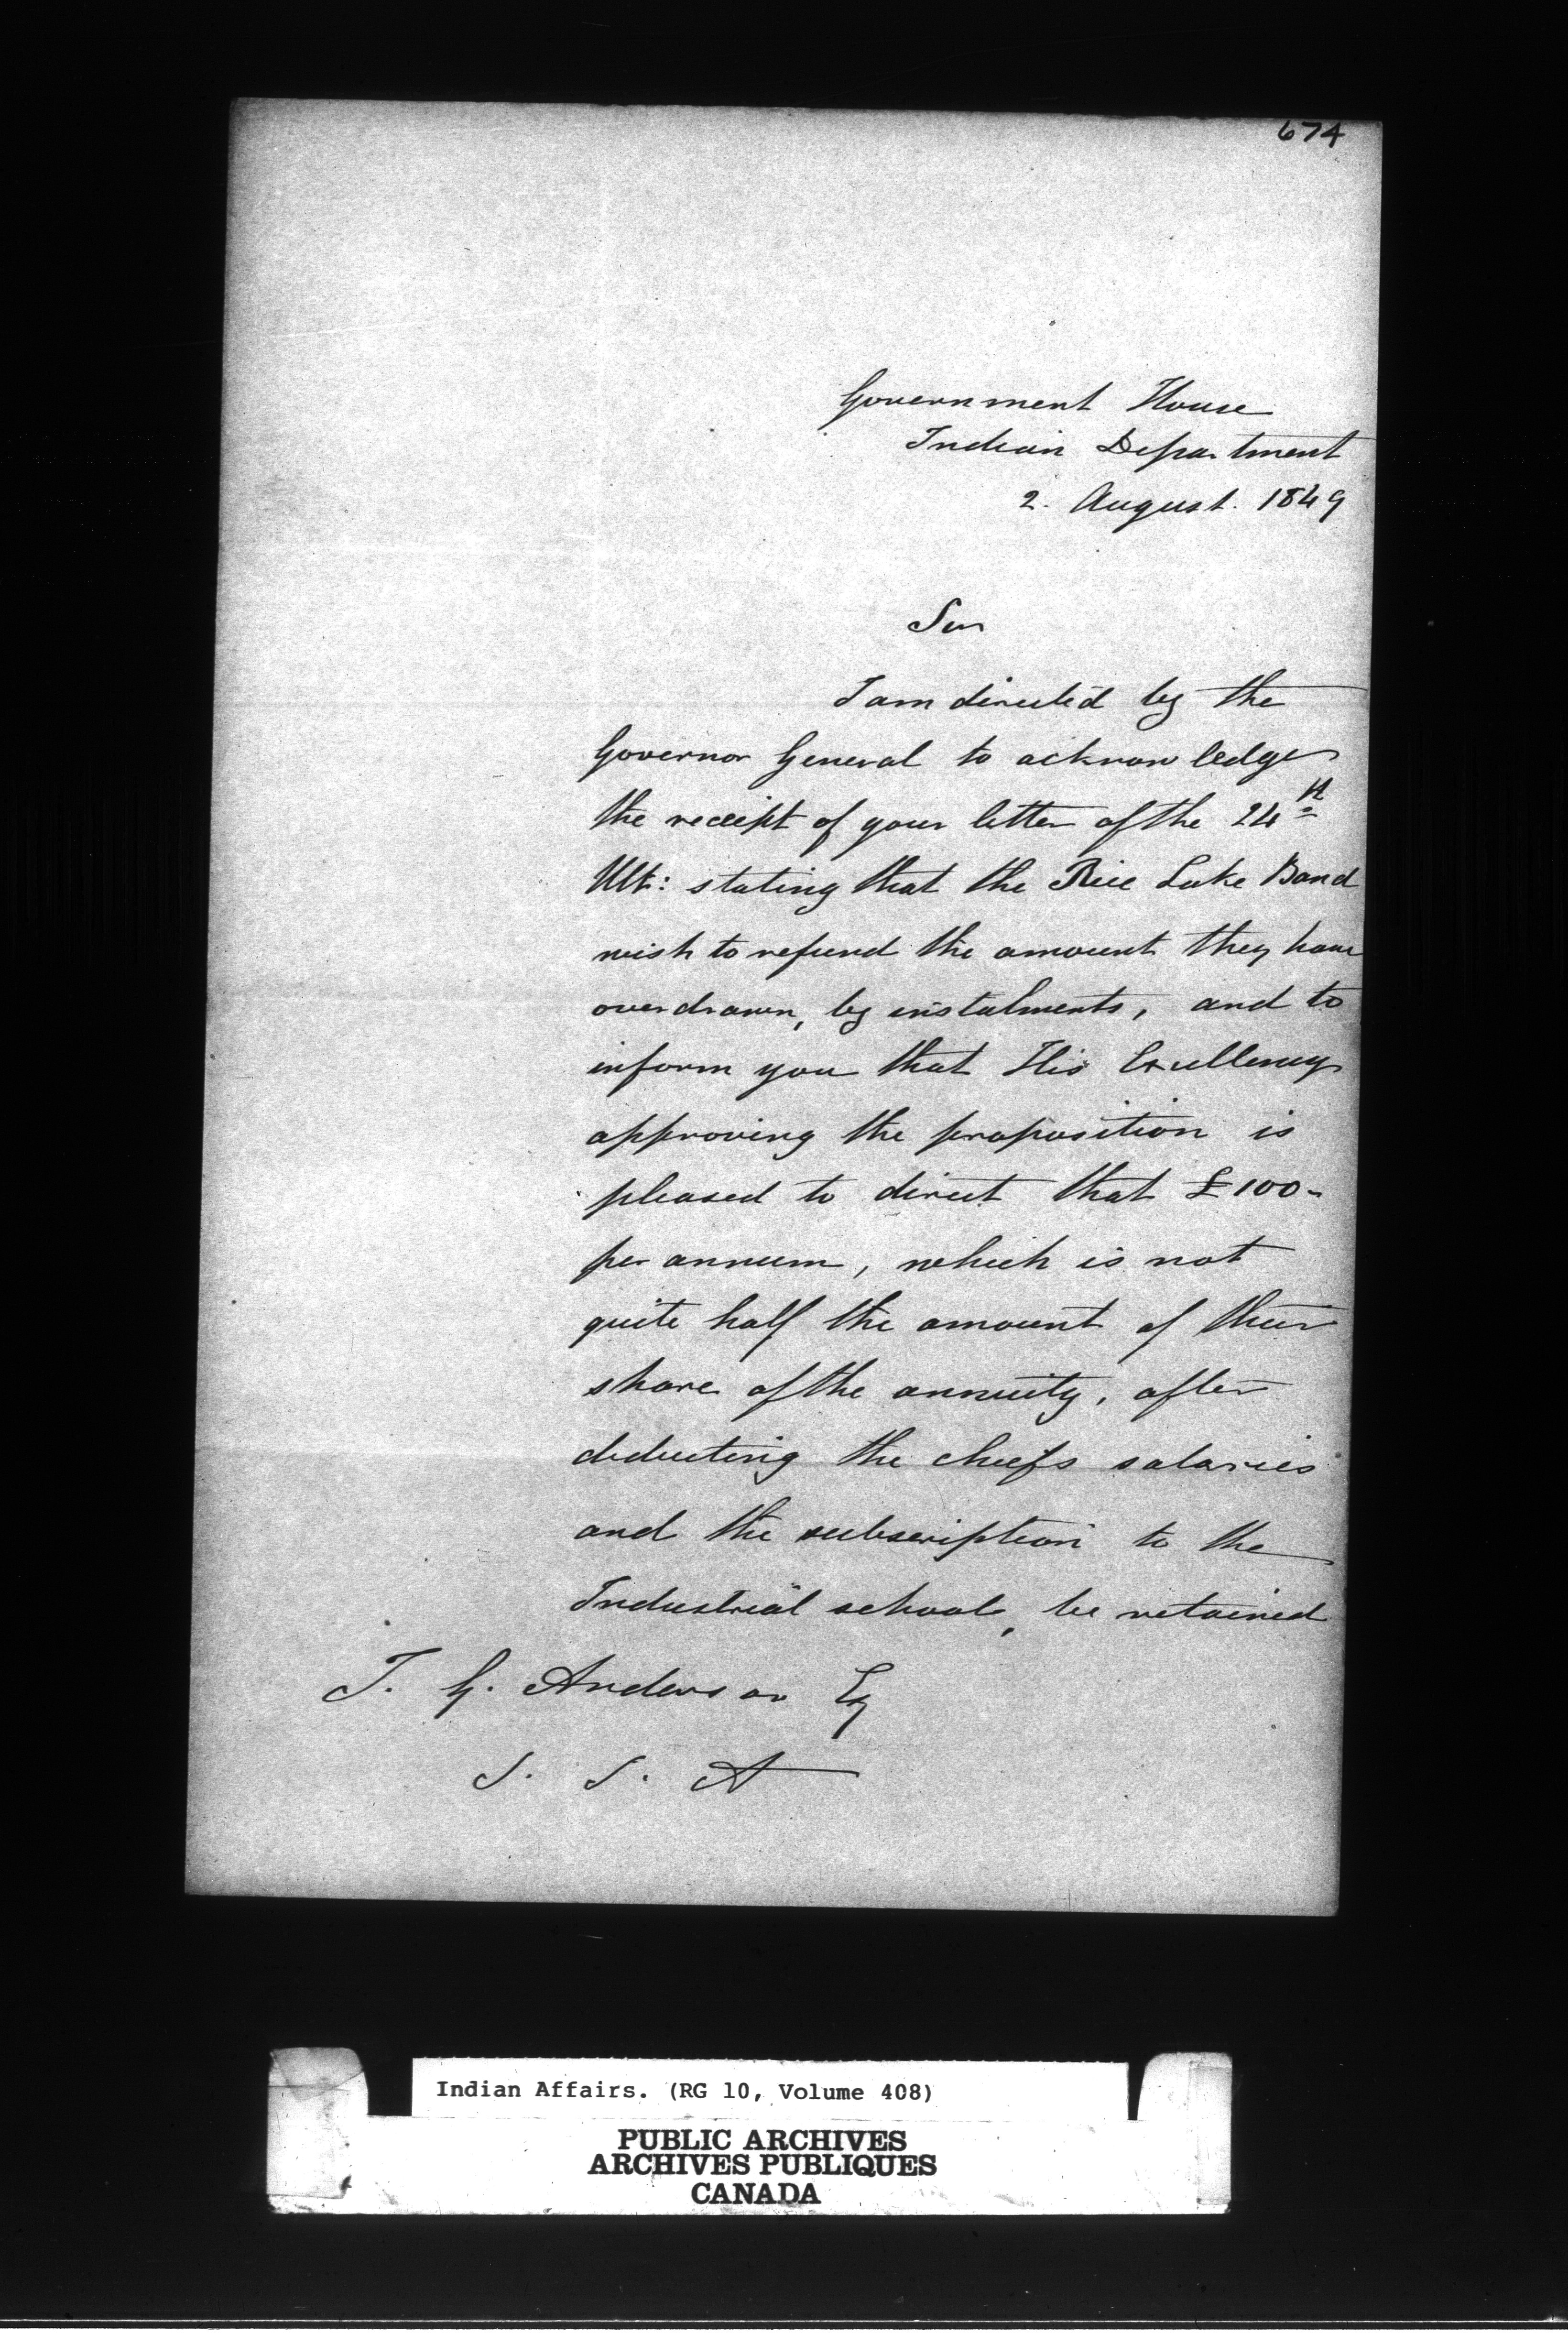 674
Government House
Indian Department
2. August. 1849
Sir
I am directed by the
Governor General to acknowledge
the receipt of your letter of the 24th
Ult: stating that the Rice Lake Band
wish to refund the amount they have
overdrawn, by instalments, and to
inform you that His Excellency
approving the proposition is
pleased to direct that £100-
per annum, which is not
quite half the amount of their
share of the annuity, after
deducting the chiefs salaries
and the subscription to the
Industrial school, be retained
T. G. Anderson Esq
S. S. A
Indian Affairs. (RG 10, Volume 408)
PUBLIC ARCHIVES
ARCHIVES PUBLIQUES
CANADA